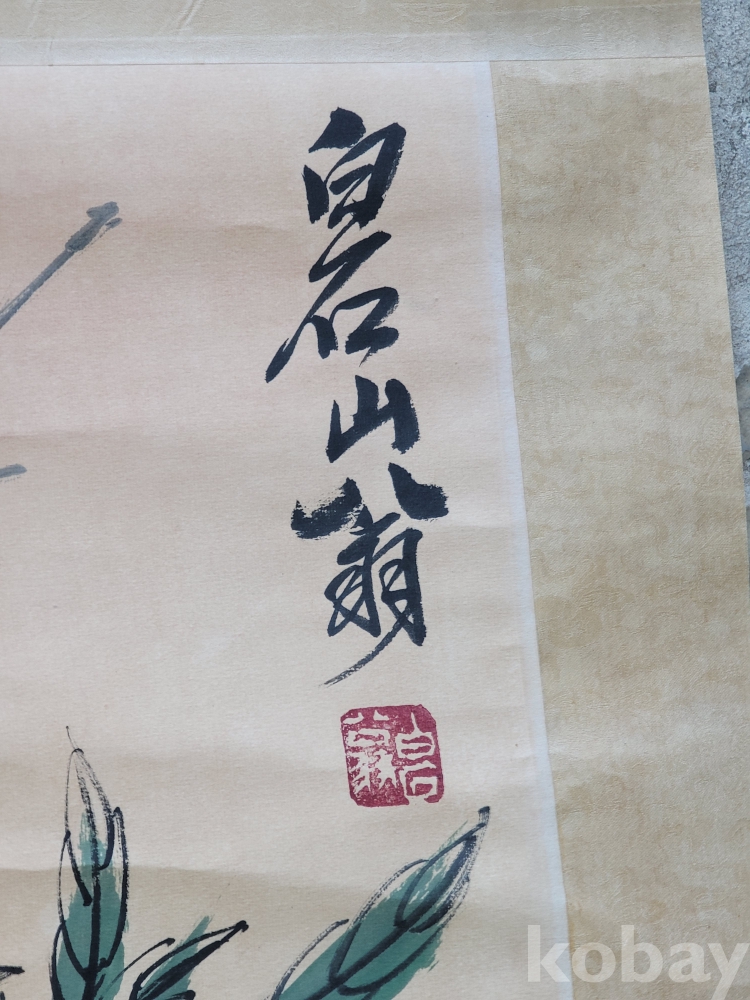 白石山翁
白石翁
kobay